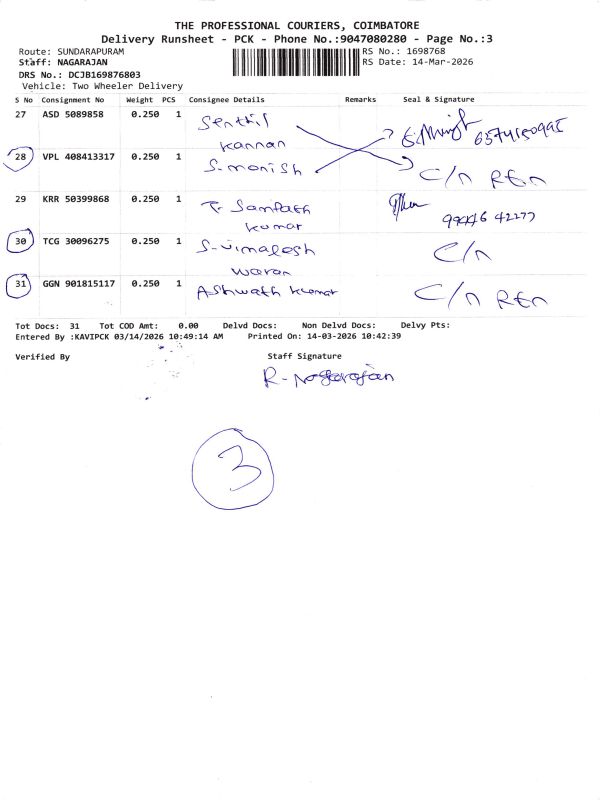 THE PROFESSIONAL COURIERS, COIMBATORE
Delivery Runsheet - PCK - Phone No.:9047080280 - Page No.:3
Route: SUNDARAPURAM RS No.: 1698768
Staff: NAGARAJAN RS Date: 14-Mar-2026
DRS No.: DCJB169876803
Vehicle: Two Wheeler Delivery
S No Consignment No Weight PCS Consignee Details Remarks Seal & Signature
27 ASD 5089858 0.250 1 Senthil
Kannan 6374150995
28 VPL 408413317 0.250 1 S. monish C/n REn
29 KRR 50399868 0.250 1 Sampath
Kumar 99446 42277
30 TCG 30096275 0.250 1 S-vimalesh C/n
waran
31 GGN 901815117 0.250 1 Ashwath Kumar C/n REn
Tot Docs: 31 Tot COD Amt: 0.00 Delvd Docs: Non Delvd Docs: Delvy Pts:
Entered By :KAVIPCK 03/14/2026 10:49:14 AM Printed On: 14-03-2026 10:42:39
Verified By Staff Signature
R-Nagarajan
3